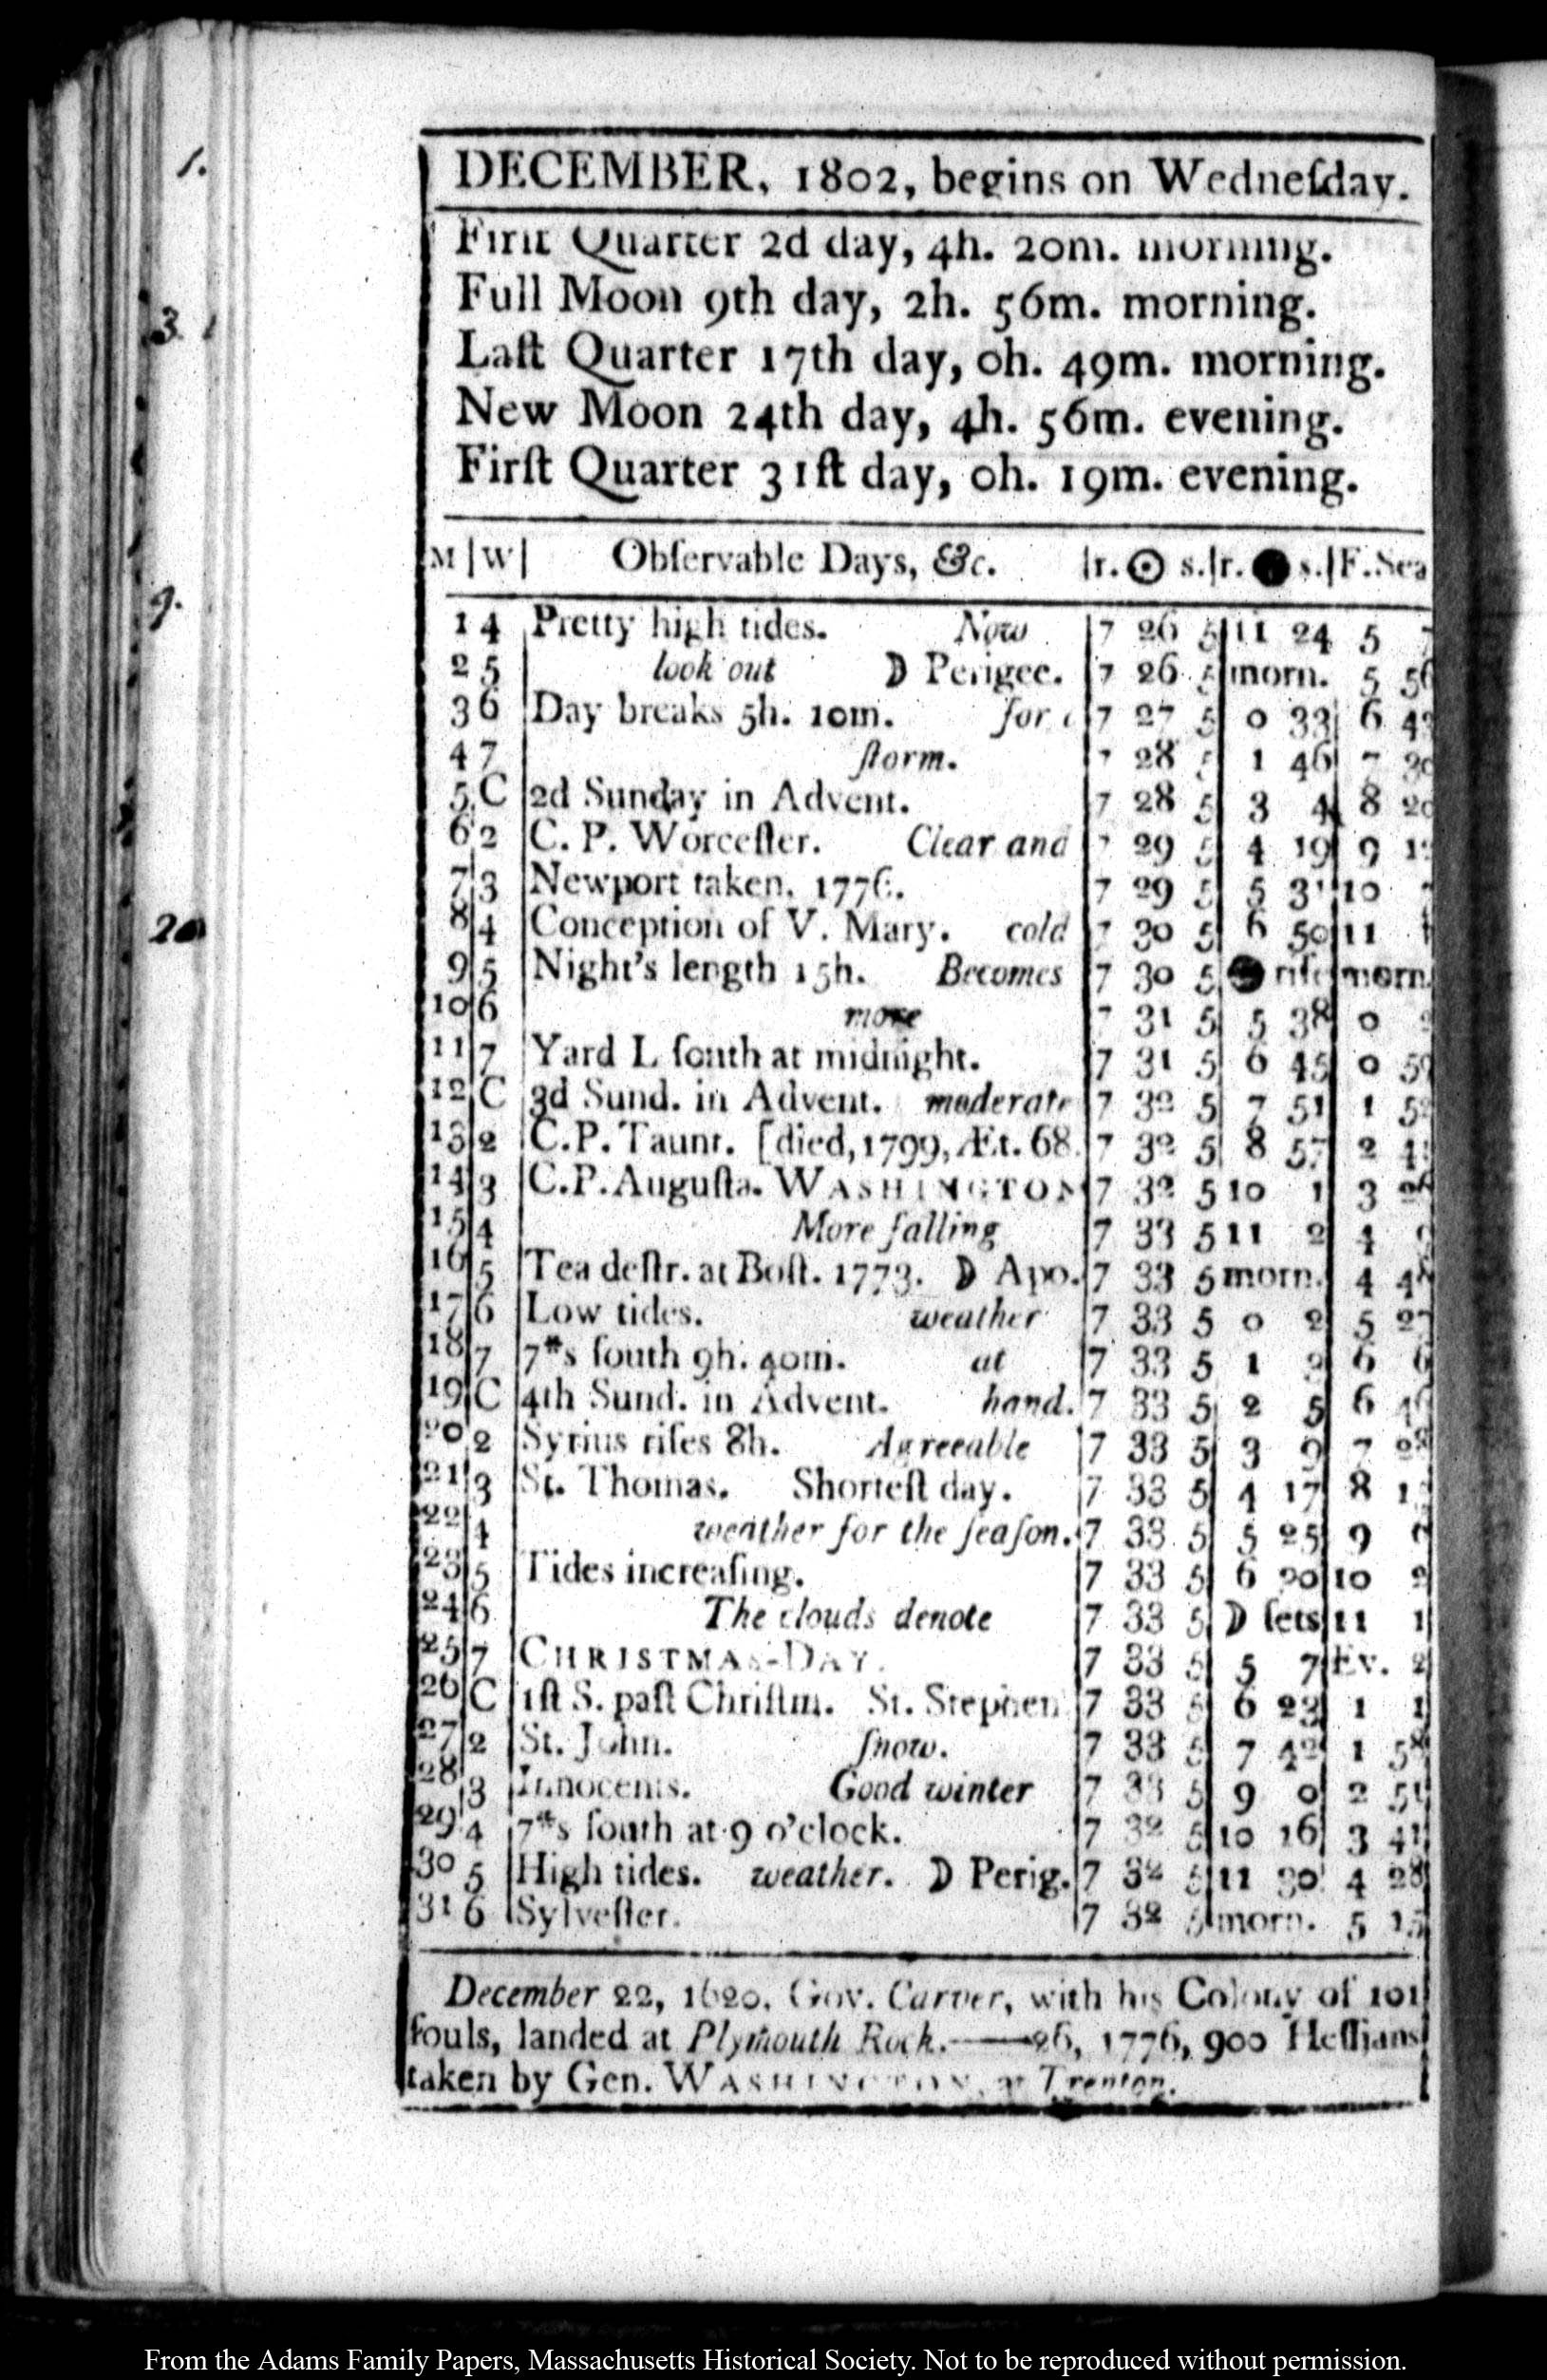 1.
3
9.
20
DECEMBER, 1802, begins on Wedneſday.
Firſt Quarter 2d day, 4h. 20m. morning.
Full Moon 9th day, 2h. 56m. morning.
Laſt Quarter 17th day, 0h. 49m. morning.
New Moon 24th day, 4h. 56m. evening.
Firſt Quarter 31ſt day, 0h. 19m. evening.
M|W| Obſervable Days, &c. |r. ☉ s.|r. ● s.|F.Sea
1 4 Pretty high tides. Now 7 26 5 11 24 5
2 5 look out D Perigee. 7 26 5 morn. 5 56
3 6 Day breaks 5h. 10m. for 7 27 5 0 33 6
4 7 ſtorm. 7 28 5 1 46 7
5 C 2d Sunday in Advent. 7 28 5 3 4 8 20
6 2 C. P. Worceſter. Clear and 7 29 5 4 19 9
7 3 Newport taken. 1776. 7 29 5 5 31 10
8 4 Conception of V. Mary. cold 7 30 5 6 50 11
9 5 Night's length 15h. Becomes 7 30 5 ● riſe morn.
10 6 more 7 31 5 5 38 0
11 7 Yard L ſouth at midnight. 7 31 5 6 45 0
12 C 3d Sund. in Advent. moderate 7 32 5 7 51 1
13 2 C.P. Taunt. [died, 1799, Æt. 68. 7 32 5 8 57 2
14 3 C.P. Auguſta. WASHINGTON 7 32 5 10 1 3
15 4 More falling 7 33 5 11 2 4
16 5 Tea deſtr. at Boſt. 1773. D Apo. 7 33 5 morn. 4
17 6 Low tides. weather 7 33 5 0 2 5 27
18 7 7*s ſouth 9h. 40m. at 7 33 5 1 2 6 6
19 C 4th Sund. in Advent. hand. 7 33 5 2 5 6
20 2 Syrius riſes 8h. Agreeable 7 33 5 3 9 7
21 3 St. Thomas. Shorteſt day. 7 33 5 4 17 8
22 4 weather for the ſeaſon. 7 33 5 5 25 9
23 5 Tides increaſing. 7 33 5 6 20 10
24 6 The clouds denote 7 33 5 D ſets 11
25 7 CHRISTMAS-DAY. 7 33 5 5 7 Ev.
26 C 1ſt S. paſt Chriſtm. St. Stephen 7 33 5 6 23 1
27 2 St. John. ſnow. 7 33 5 7 42 1
28 3 Innocents. Good winter 7 33 5 9 0 2
29 4 7*s ſouth at 9 o'clock. 7 32 5 10 16 3 41
30 5 High tides. weather. D Perig. 7 32 5 11 30 4 28
31 6 Sylveſter. 7 32 5 morn. 5 15
December 22, 1620, Gov. Carver, with his Colony of 101
ſouls, landed at Plymouth Rock.——26, 1776, 900 Heſſians
taken by Gen. WASHINGTON, at Trenton.
From the Adams Family Papers, Massachusetts Historical Society. Not to be reproduced without permission.